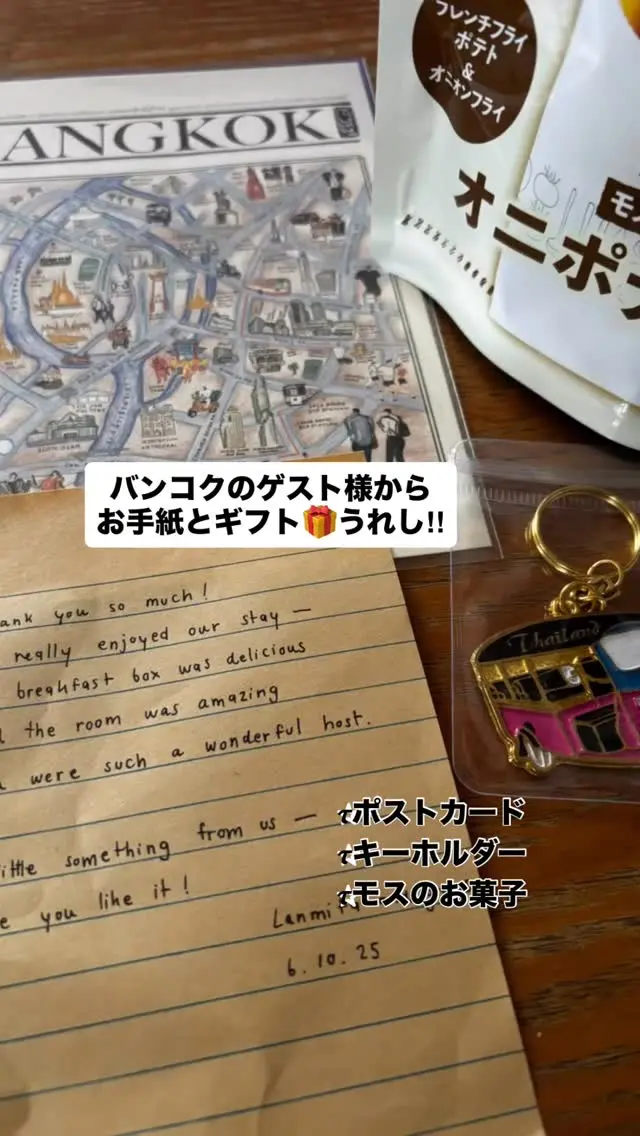 フレンチフライ
ポテト
&
オニオンフライ
オニポテ
ANGKOK
バンコクのゲスト様から
お手紙とギフト🎁うれし!!
ank you so much!
really enjoyed our stay —
breakfast box was delicious
the room was amazing
were such a wonderful host.
ittle something from us —
e you like it!
Lanmi
6.10.25
Thailand
ポストカード
キーホルダー
モスのお菓子